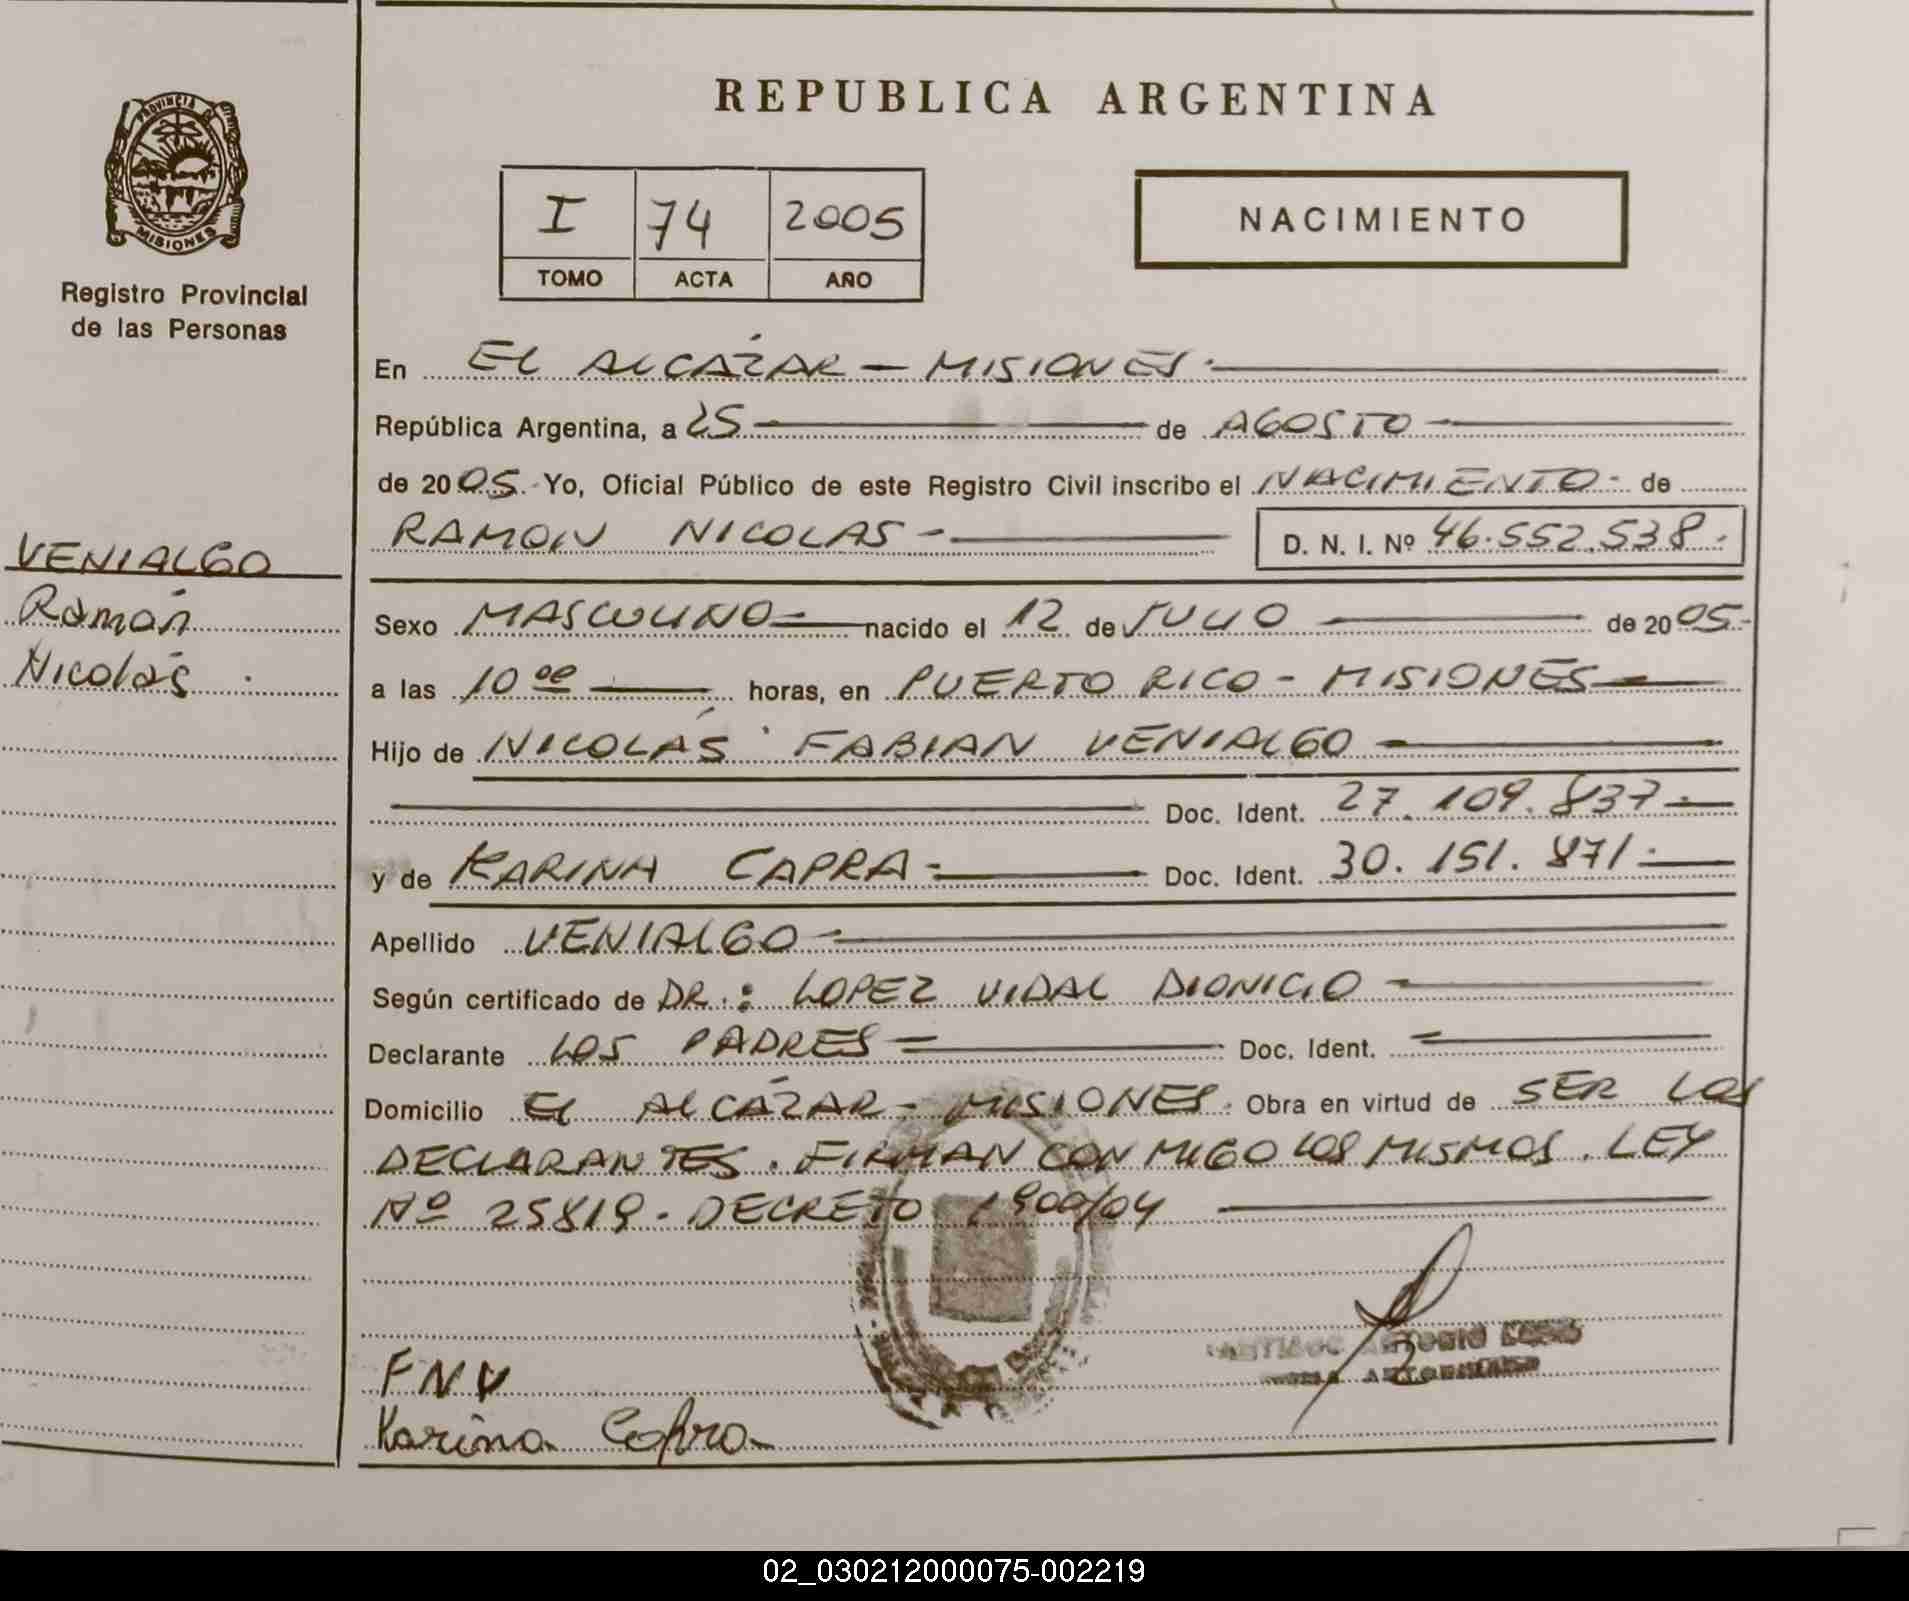 REPUBLICA ARGENTINA
PROVINCIA DE
MISIONES
Registro Provincial
de las Personas
I 74 2005
TOMO ACTA AÑO
NACIMIENTO
En EL ALCÁZAR — MISIONES.
República Argentina, a 25 de AGOSTO
de 2005. Yo, Oficial Público de este Registro Civil inscribo el NACIMIENTO - de
RAMON NICOLAS -
D. N. I. Nº 46.552.538.
VENIALGO
Ramón
Nicolás.
Sexo MASCULINO nacido el 12 de JULIO de 2005.-
a las 10 00 horas, en PUERTO RICO - MISIONES
Hijo de NICOLÁS FABIAN VENIALGO
Doc. Ident. 27.109.837
y de KARINA CAPRA- Doc. Ident. 30.151.871.
Apellido VENIALGO
Según certificado de DR.: LOPEZ VIDAL DIONICIO
Declarante LOS PADRES Doc. Ident.
Domicilio EL ALCÁZAR - MISIONES. Obra en virtud de SER LOS
DECLARANTES. FIRMAN CONMIGO LOS MISMOS. LEY
Nº 25819. DECRETO 1900/04
ANTONIO
FNV
Karina Capra
02_030212000075-002219